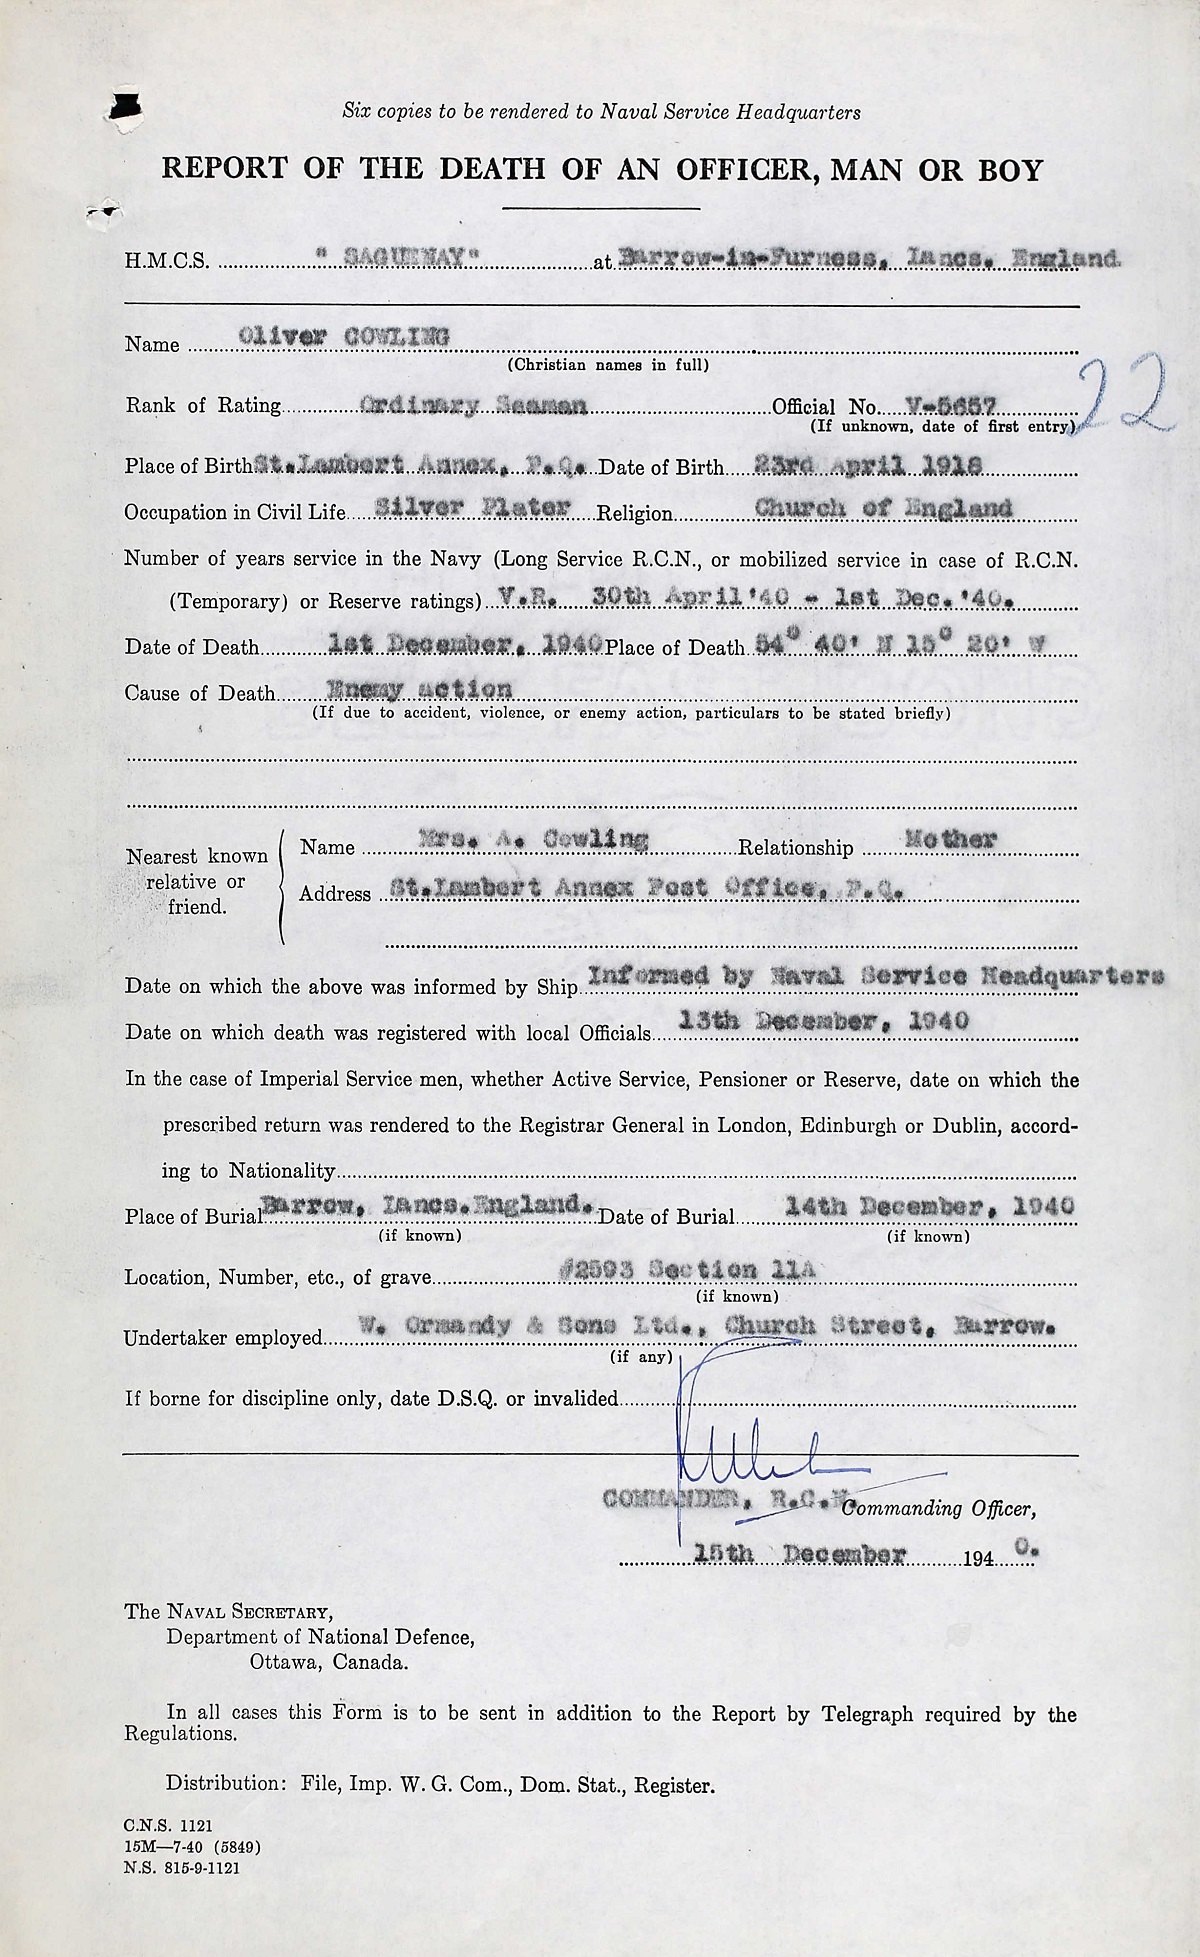 Six copies to be rendered to Naval Service Headquarters
REPORT OF THE DEATH OF AN OFFICER, MAN OR BOY
H.M.C.S. " SAGUENAY" at Barrow-in-Furness, Lancs. England.
Name Oliver COWLING
(Christian names in full)
22
Rank of Rating Ordinary Seaman Official No. V-5657
(If unknown, date of first entry)
Place of Birth St.Lambert Annex, P.Q. Date of Birth 23rd April 1918
Occupation in Civil Life Silver Plater Religion Church of England
Number of years service in the Navy (Long Service R.C.N., or mobilized service in case of R.C.N.
(Temporary) or Reserve ratings) V.R. 30th April'40 - 1st Dec.'40.
Date of Death 1st December, 1940 Place of Death 54° 40' N 15° 20' W
Cause of Death Enemy action
(If due to accident, violence, or enemy action, particulars to be stated briefly)
Nearest known relative or friend.
Name Mrs. A. Cowling Relationship Mother
Address St.Lambert Annex Post Office, P.Q.
Date on which the above was informed by Ship Informed by Naval Service Headquarters
Date on which death was registered with local Officials 13th December, 1940
In the case of Imperial Service men, whether Active Service, Pensioner or Reserve, date on which the
prescribed return was rendered to the Registrar General in London, Edinburgh or Dublin, accord-
ing to Nationality
Place of Burial Barrow, Lancs.England. Date of Burial 14th December, 1940
(if known) (if known)
Location, Number, etc., of grave #2593 Section 11A
(if known)
Undertaker employed W. Ormandy & Sons Ltd., Church Street, Barrow.
(if any)
If borne for discipline only, date D.S.Q. or invalided
COMMANDER, R.C.N. Commanding Officer,
15th December 1940.
The NAVAL SECRETARY,
Department of National Defence,
Ottawa, Canada.
In all cases this Form is to be sent in addition to the Report by Telegraph required by the
Regulations.
Distribution: File, Imp. W. G. Com., Dom. Stat., Register.
C.N.S. 1121
15M—7-40 (5849)
N.S. 815-9-1121